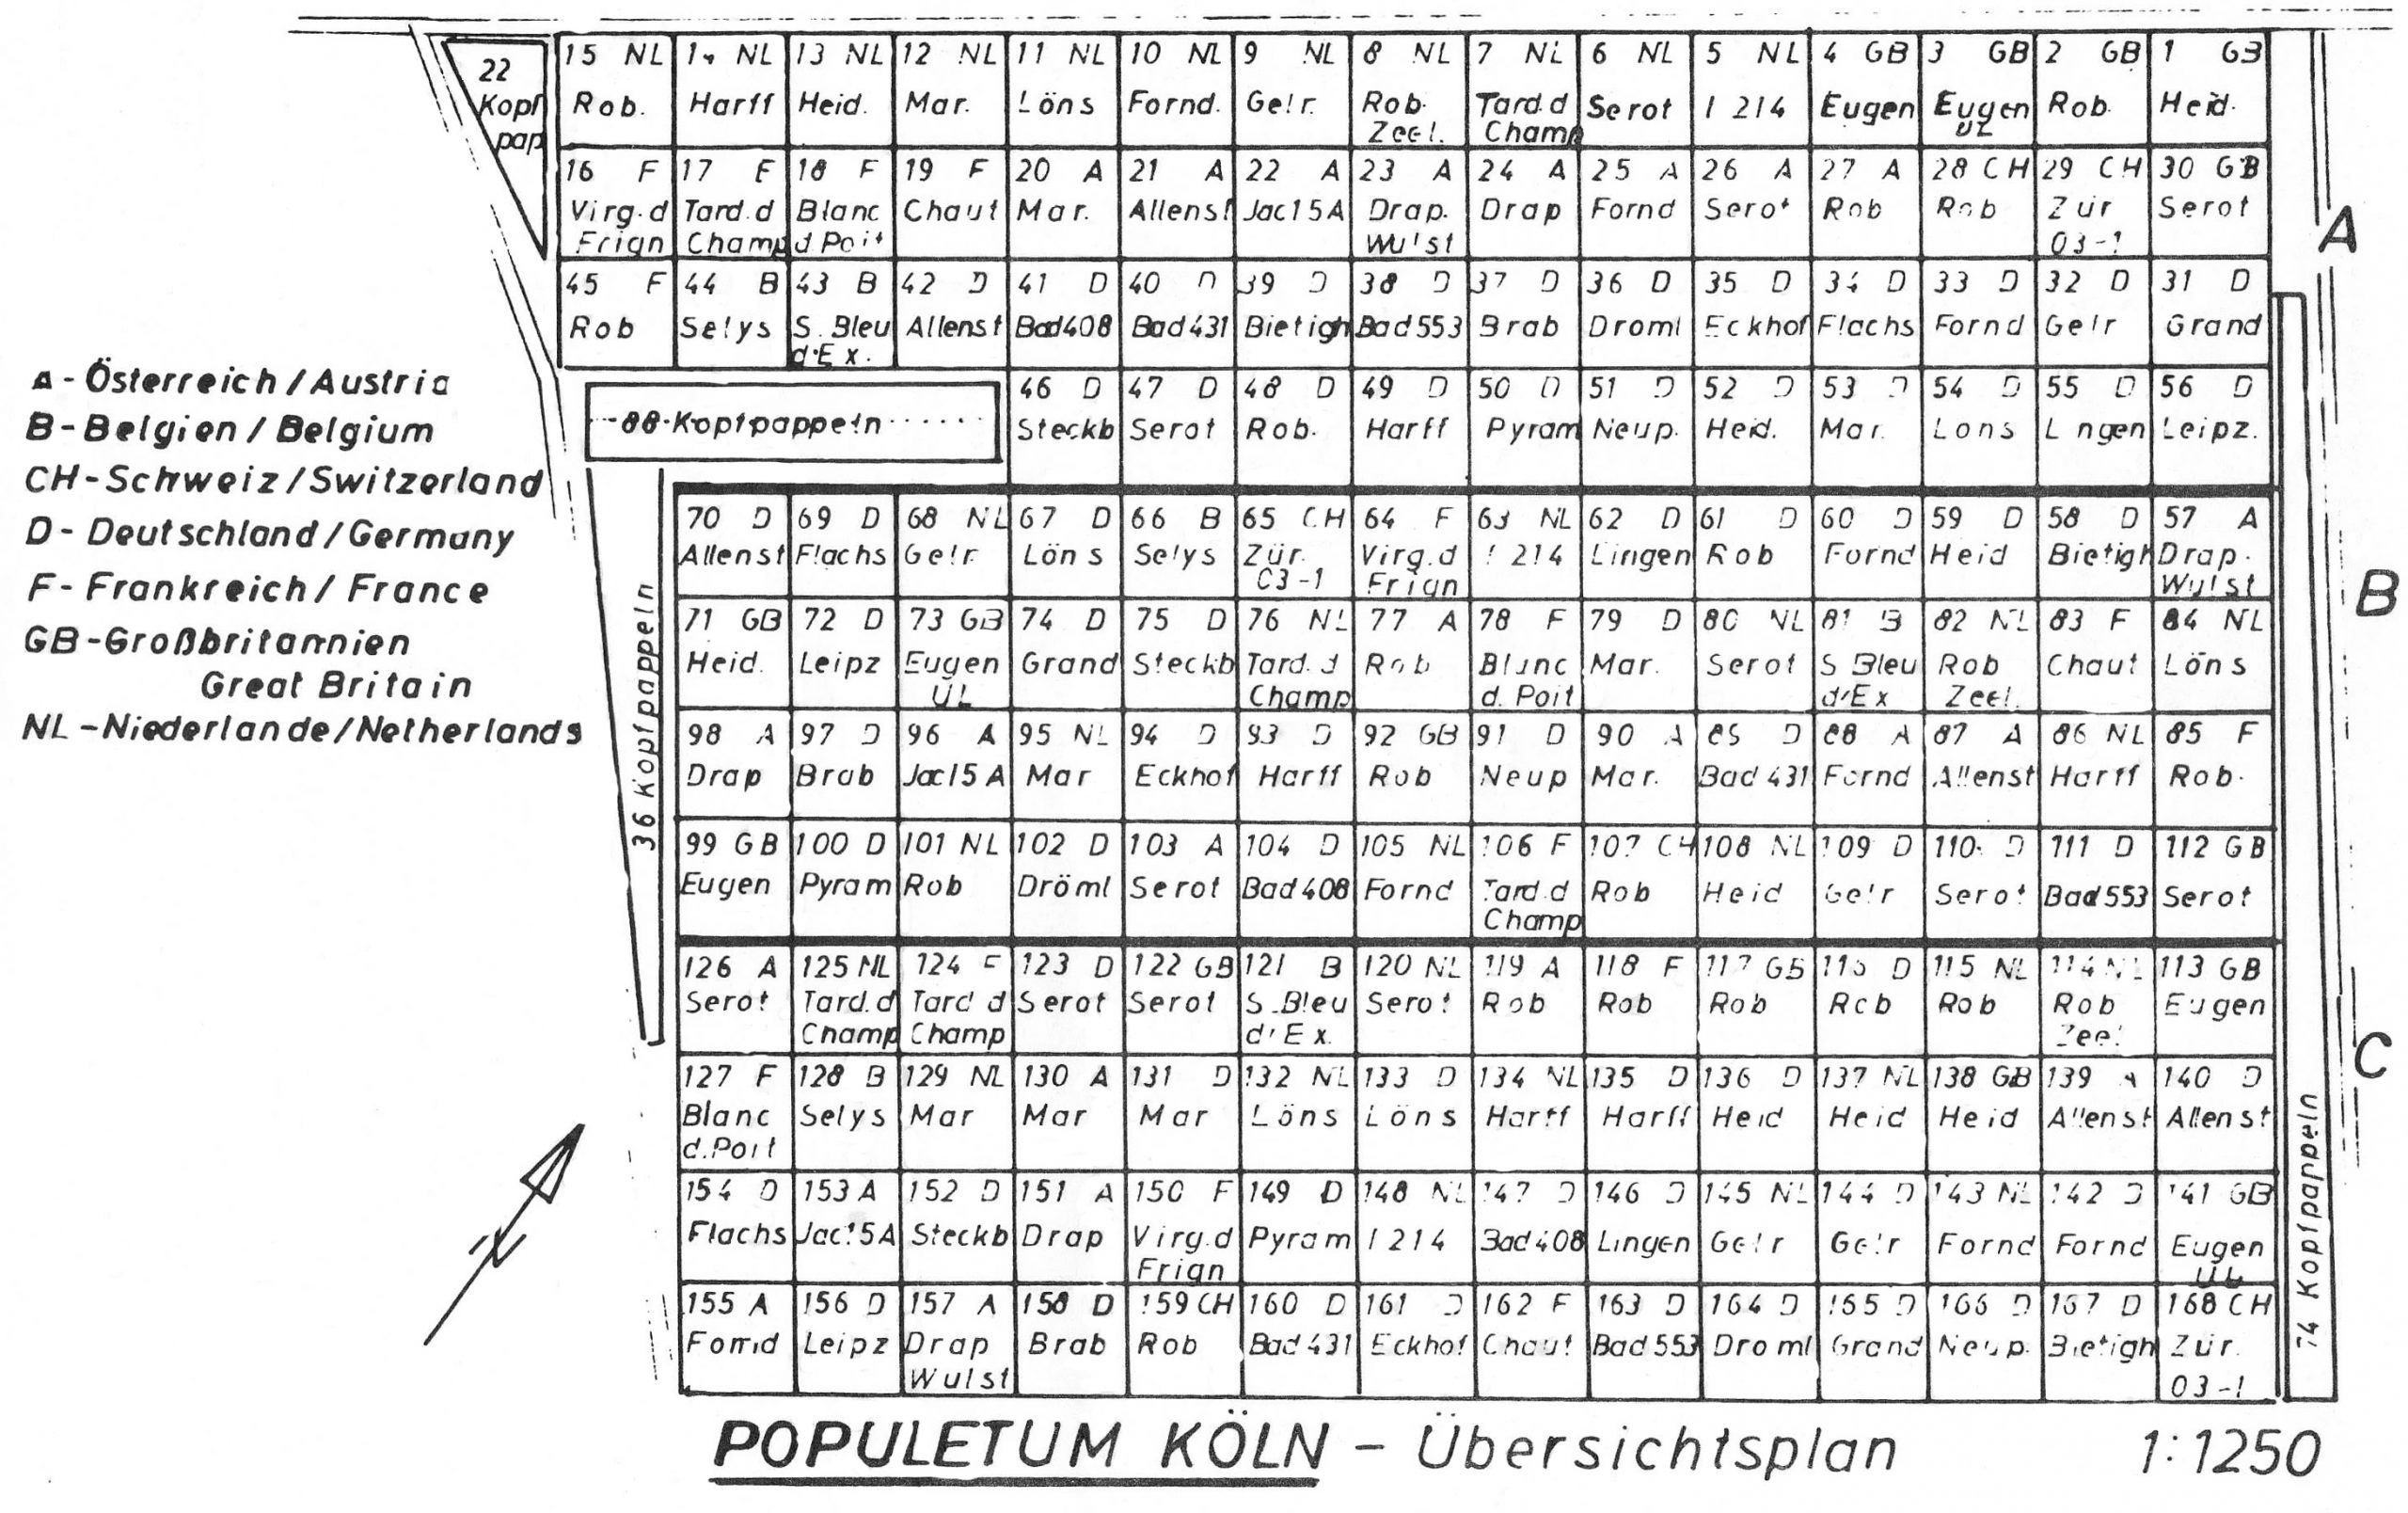 22 Kopf pap
15 NL 14 NL 13 NL 12 NL 11 NL 10 NL 9 NL 8 NL 7 NL 6 NL 5 NL 4 GB 3 GB 2 GB 1 GB
Rob. Harff Heid. Mar. Löns Fornd. Gelr. Rob. Zeel. Tard.d Champ Serot I 214 Eugen Eugen ÜL Rob. Heid.
16 F 17 F 18 F 19 F 20 A 21 A 22 A 23 A 24 A 25 A 26 A 27 A 28 CH 29 CH 30 GB
Virg.d Frign Tard.d Champ Blanc d Poit Chaut Mar. Allenst Jac15A Drap. Wulst Drap Fornd Serot Rob Rob Zür 03-1 Serot
45 F 44 B 43 B 42 D 41 D 40 D 39 D 38 D 37 D 36 D 35 D 34 D 33 D 32 D 31 D
Rob Selys S. Bleu d'Ex. Allenst Bad408 Bad431 Bietigh Bad553 Brab Droml Eckhof Flachs Fornd Gelr Grand
88 Kopfpappeln
46 D 47 D 48 D 49 D 50 D 51 D 52 D 53 D 54 D 55 D 56 D
Steckb Serot Rob. Harff Pyram Neup. Heid. Mar. Lons L ngen Leipz.
A
A - Österreich / Austria
B - Belgien / Belgium
CH - Schweiz / Switzerland
D - Deutschland / Germany
F - Frankreich / France
GB - Großbritannien
Great Britain
NL - Niederlande / Netherlands
36 Kopfpappeln
70 D 69 D 68 NL 67 D 66 B 65 CH 64 F 63 NL 62 D 61 D 60 D 59 D 58 D 57 A
Allenst Flachs Gelr Löns Selys Zür. 03-1 Virg.d Frign I 214 Lingen Rob Fornd Heid Bietigh Drap. Wulst
71 GB 72 D 73 GB 74 D 75 D 76 NL 77 A 78 F 79 D 80 NL 81 B 82 NL 83 F 84 NL
Heid. Leipz Eugen ÜL Grand Steckb Tard.d Champ Rob Blanc d. Poit Mar. Serot S Bleu d'Ex Rob Zeel. Chaut Löns
B
98 A 97 D 96 A 95 NL 94 D 93 D 92 GB 91 D 90 A 89 D 88 A 87 A 86 NL 85 F
Drap Brab Jac15 A Mar Eckhof Harff Rob Neup Mar. Bad 431 Fornd Allenst Harff Rob.
99 GB 100 D 101 NL 102 D 103 A 104 D 105 NL 106 F 107 CH 108 NL 109 D 110 D 111 D 112 GB
Eugen Pyram Rob Dröml Serot Bad408 Fornd Tard.d Champ Rob Heid Gelr Serot Bad553 Serot
126 A 125 NL 124 F 123 D 122 GB 121 B 120 NL 119 A 118 F 117 GB 116 D 115 NL 114 NL 113 GB
Serot Tard.d Champ Tard d Champ Serot Serot S. Bleu d'Ex. Serot Rob Rob Rob Rob Rob Rob Zeel Eugen
C
127 F 128 B 129 NL 130 A 131 D 132 NL 133 D 134 NL 135 D 136 D 137 NL 138 GB 139 A 140 D
Blanc d.Poit Selys Mar Mar Mar Löns Löns Harff Harff Heid Heid Heid Allenst Allenst
154 D 153 A 152 D 151 A 150 F 149 D 148 NL 147 D 146 D 145 NL 144 D 143 NL 142 D 141 GB
Flachs Jac15A Steckb Drap Virg.d Frign Pyram I 214 Bad408 Lingen Gelr Gelr Fornd Fornd Eugen ÜL
155 A 156 D 157 A 158 D 159 CH 160 D 161 D 162 F 163 D 164 D 165 D 166 D 167 D 168 CH
Fornd Leipz Drap Wulst Brab Rob Bad431 Eckhof Chaut Bad553 Droml Grand Neup. Bietigh Zür. 03-1
74 Kopfpappeln
N
POPULETUM KÖLN - Übersichtsplan 1:1250